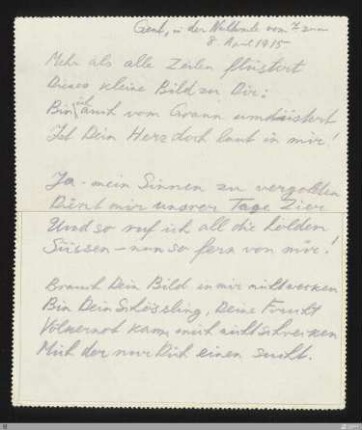 Genf, in der Nachtseite vom 7 zum
8. April 1915
Mehr als alle Zeilen flüstert
Dieses kleine Bild zu Dir:
Bin ich auch vom Graun umdüstert
Ist Dein Herz doch laut in mir!
Ja - mein Sinnen zu vergolden
Dient mir unsrer Tage Zier
Und so ruf ich all die holden
Süssen - nun so fern von mir!
Brauch Dein Bild in mir nicht wecken
Bin Dein Schössling, Deine Frucht
Völkernot kann mich nicht schrecken
Mich der nur Dich einen sucht.